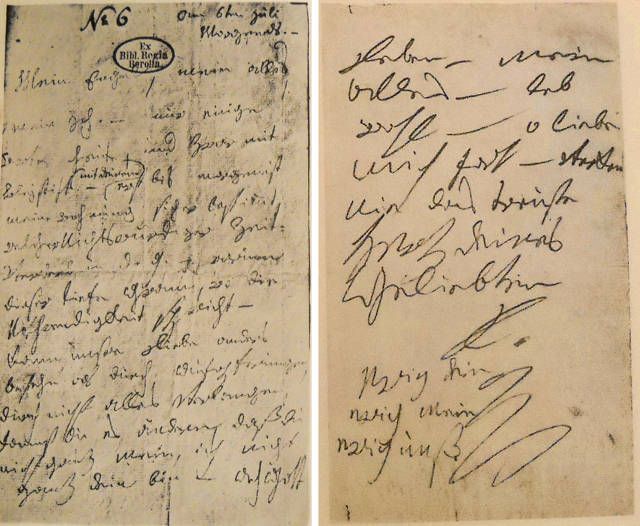 No 6
am 6ten Juli
Morgends. —
Ex
Bibl. Regia
Berolin.
Mein Engel, mein alles
mein Ich. — nur einige
Worte heute, und zwar mit
Bleystift — (mit deinem) bis morgen ist
meine Wohnung sicher bestimmt,
welcher Nichtswürdiger Zeit-
verderb in d. g. — warum
dieser tiefe Gram, wo die
Nothwendigkeit spricht —
Kann unsre Liebe anders
bestehn als durch Aufopferungen,
durch nicht alles verlangen,
kannst du es ändern, daß du
nicht ganz mein, ich nicht
ganz dein bin — Ach Gott
Leben — mein
alles — leb
wohl — o liebe
mich fort —
nie das treuste
Herz deines
Geliebten
L.
ewig dein
ewig mein
ewig unß